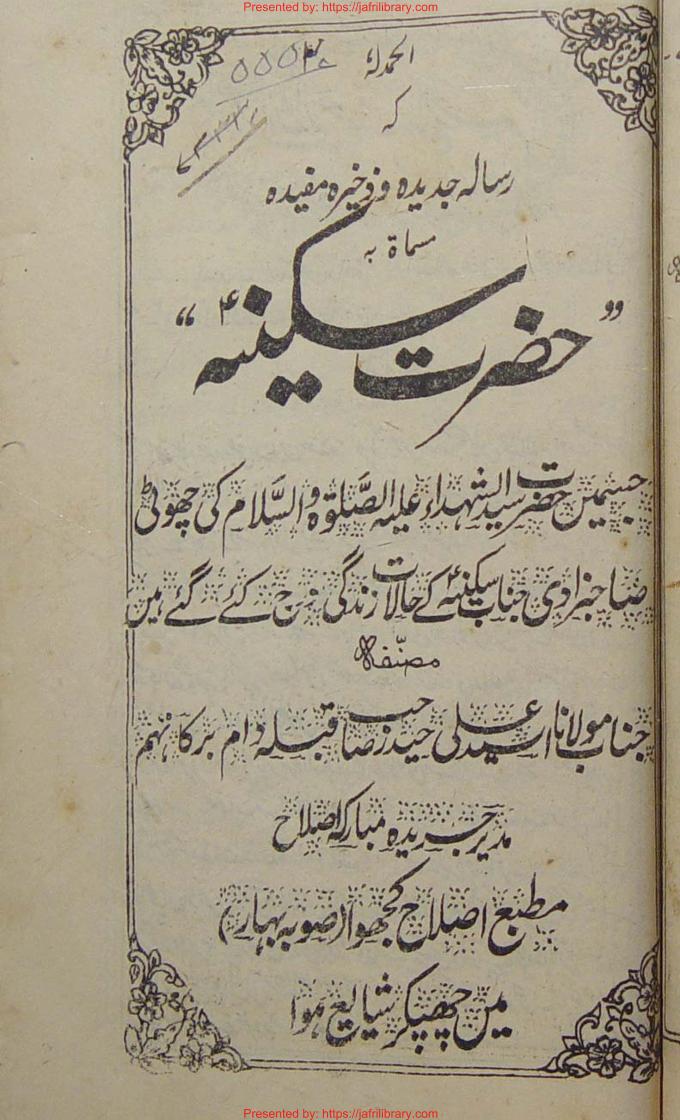 Presented by: https://jafrilibrary.com
الحمد للہ
کہ
رسالہ جدیدہ و ذخیرہ مفیدہ
مسماۃ بہ
”حضرت سکینہؑ“
جسمیں حضرت سید الشہداء علیہ الصَّلوٰۃ والسَّلام کی چھوٹی
صاحبزادی جناب سکینہؑ کے حالات زندگی درج کئے گئے ہیں
مصنّفہ
جناب مولانا السید علی حیدر صاحب قبلہ دام برکاتہم
مدیر جریدہ مبارکہ اصلاح
مطبع اصلاح کجھوا (صوبہ بہار)
میں چھپکر شایع ہوا
Presented by: https://jafrilibrary.com